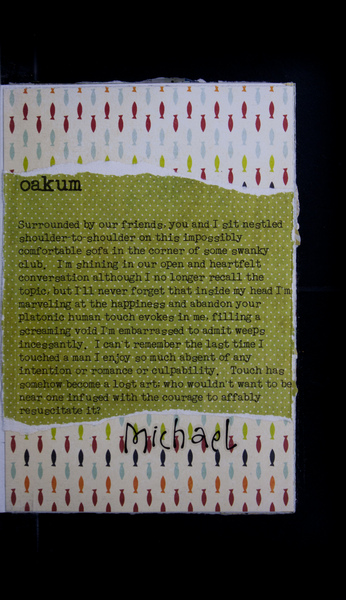 oakum
Surrounded by our friends, you and I sit nestled
shoulder to shoulder on this impossibly
comfortable sofa in the corner of some swanky
club. I'm shining in our open and heartfelt
conversation although I no longer recall the
topic, but I'll never forget that inside my head I'm
marveling at the happiness and abandon your
platonic human touch evokes in me, filling a
screaming void I'm embarrassed to admit weeps
incessantly. I can't remember the last time I
touched a man I enjoy so much absent of any
intention or romance or culpability. Touch has
somehow become a lost art; who wouldn't want to be
near one infused with the courage to affably
resuscitate it?
Michael